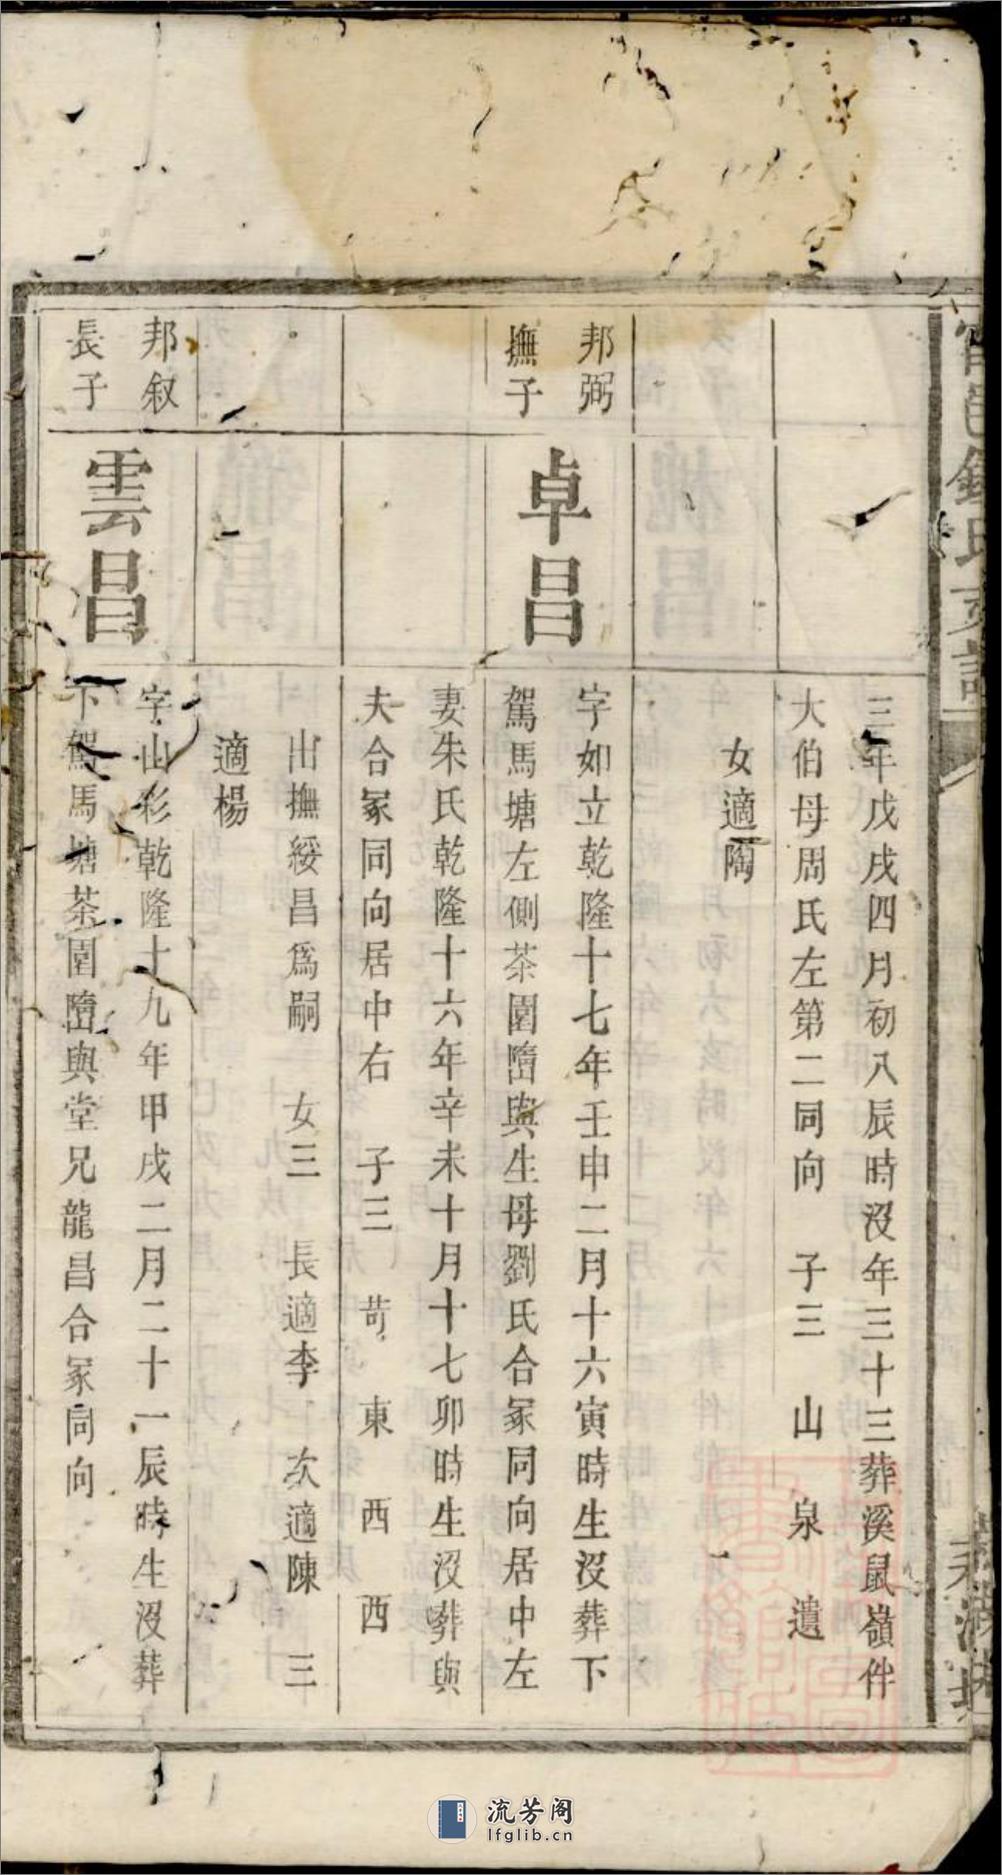 三年戊戌四月初八辰時沒年三十三葬溪鼠嶺伴
大伯母周氏左第二同向 子三 山 泉 遺
女適陶
邦弼
撫子
卓昌
字如立乾隆十七年壬申二月十六寅時生沒葬下
駕馬塘左側茶園墮與生母劉氏合冢同向居中左
妻朱氏乾隆十六年辛未十月十七卯時生沒葬與
夫合冢同向居中右 子三 苛 東 西 西
出撫綏昌爲嗣 女三 長適李 次適陳 三
適楊
邦叙
長子
雲昌
字山彩乾隆十九年甲戌二月二十一辰時生沒葬
下駕馬塘茶園墮與堂兄龍昌合冢同向
流芳阁
lfglib.cn